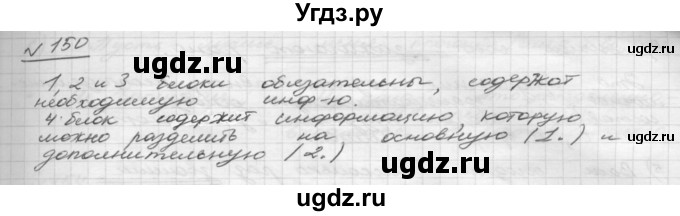 Угдз.ру
N 150
ugdz.ru ugdz.ru
1, 2 и 3 блоки обязательны, содержат
необходимую инф-ю.
ugdz.ru ugdz.ru
4 блок содержит информацию, которую
можно разделить на основную (1.) и
дополнительную (2.)
ugdz.ru ugdz.ru
ugdz.ru